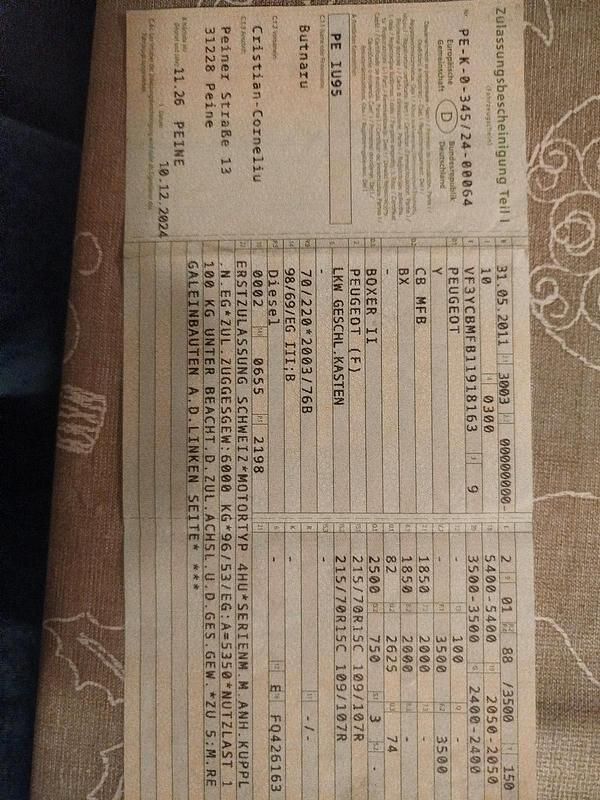 Zulassungsbescheinigung Teil I
(Fahrzeugschein)
Nr. PE-K-0-345/24-00064
Europäische Gemeinschaft D Bundesrepublik Deutschland
PE IU95
Butnaru
Cristian-Corneliu
Peiner Straße 13
31228 Peine
11.26 PEINE
10.12.2024
31.05.2011 3003 00000000-
10 0300
VF3YCBMFB11918163 9
PEUGEOT
Y
CB MFB
BX
BOXER II
PEUGEOT (F)
LKW GESCHL.KASTEN
-
70/220*2003/76B
98/69/EG III;B
Diesel
0002 0655 2198
2 01 88 /3500 150
5400-5400 2050-2050
3500-3500 2400-2400
- 100 -
- 3500 3500
1850 2000 -
1850 2000 -
82 2625 74
2500 750 3 -
215/70R15C 109/107R
215/70R15C 109/107R
-
- -/-
-
- E FQ426163
ERSTZULASSUNG SCHWEIZ*MOTORTYP 4HU*SERIENM.M.ANH.KUPPL
.N.EG*ZUL.ZUGGESGEW:6000 KG*96/53/EG:A=5350*NUTZLAST 1
100 KG UNTER BEACHT.D.ZUL.ACHSL.U.D.GES.GEW.*ZU 5:M.RE
GALEINBAUTEN A.D.LINKEN SEITE* ***